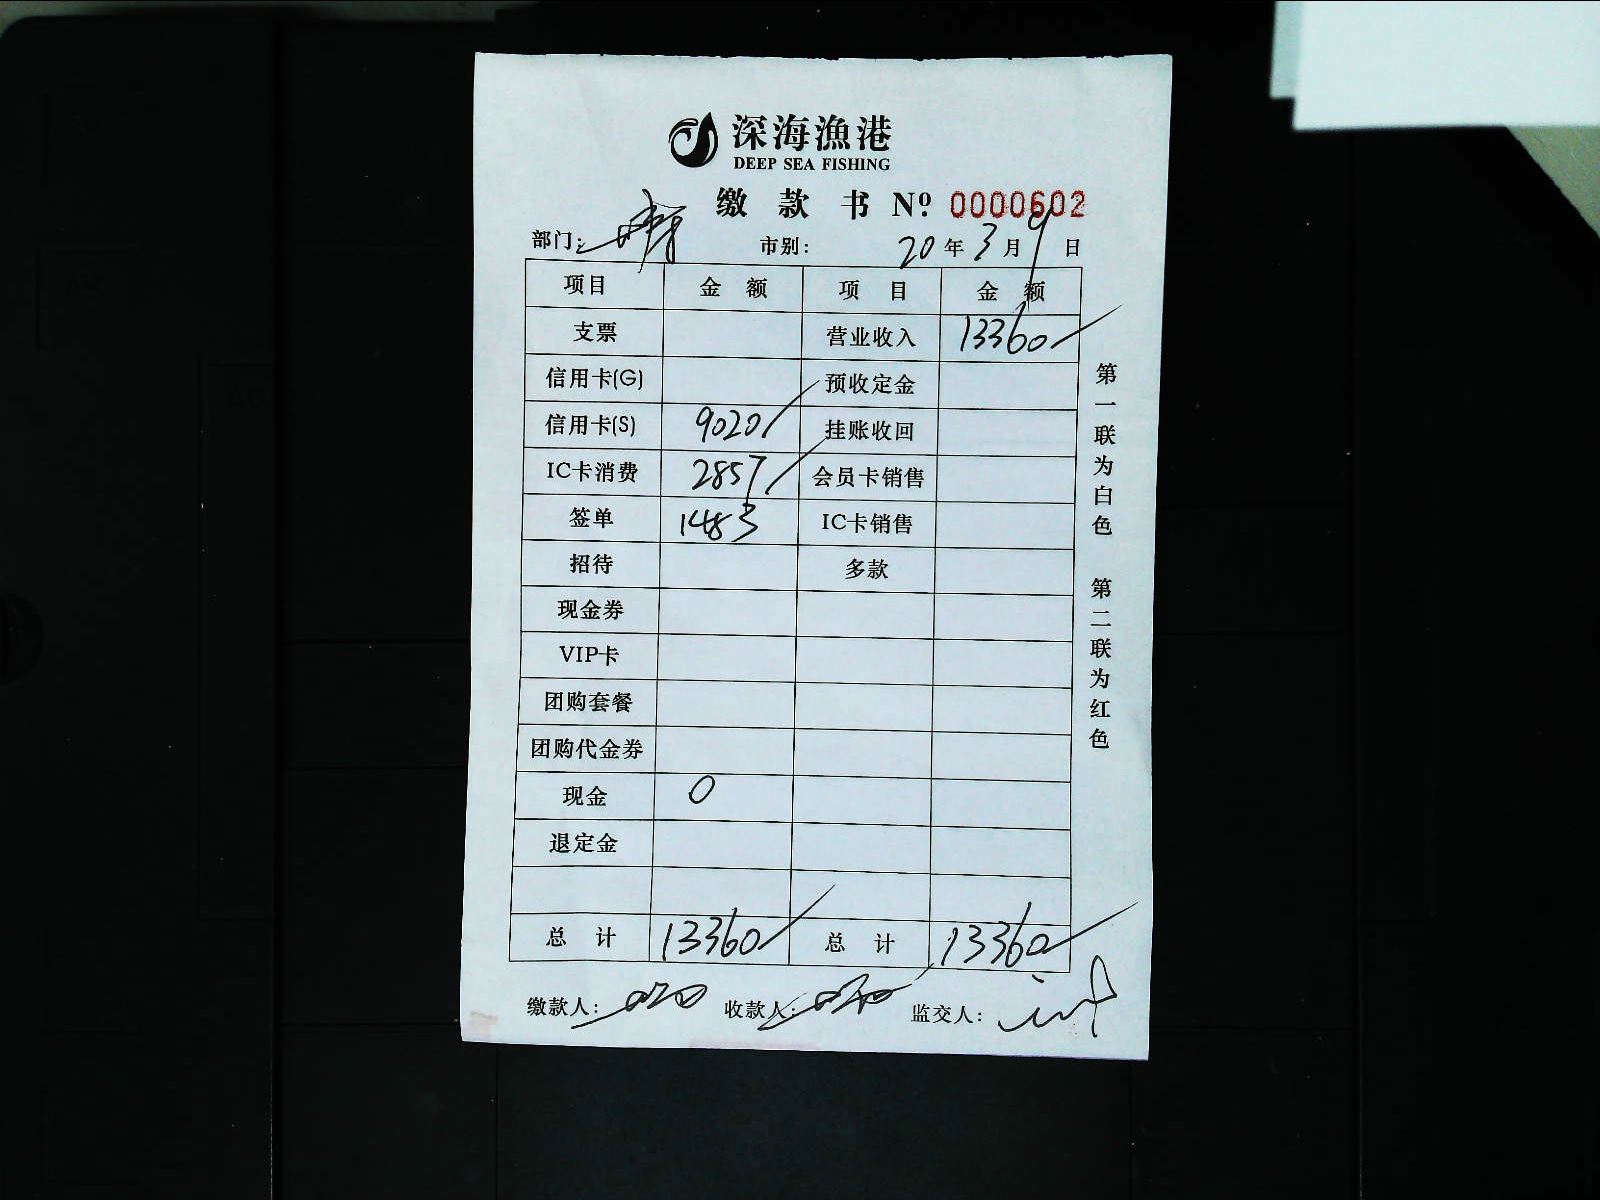 深海漁港
DEEP SEA FISHING
缴 款 书 Nº 0000602
部门: 市别: 20年3月9日
项目 金 额 项 目 金 额
支票 营业收入 13360
信用卡(G) 预收定金
信用卡(S) 9020 挂账收回
IC卡消费 2857 会员卡销售
签单 1483 IC卡销售
招待 多款
现金券
VIP卡
团购套餐
团购代金券
现金 0
退定金
总 计 13360 总 计 13360
缴款人: 收款人: 监交人:
第一联为白色 第二联为红色